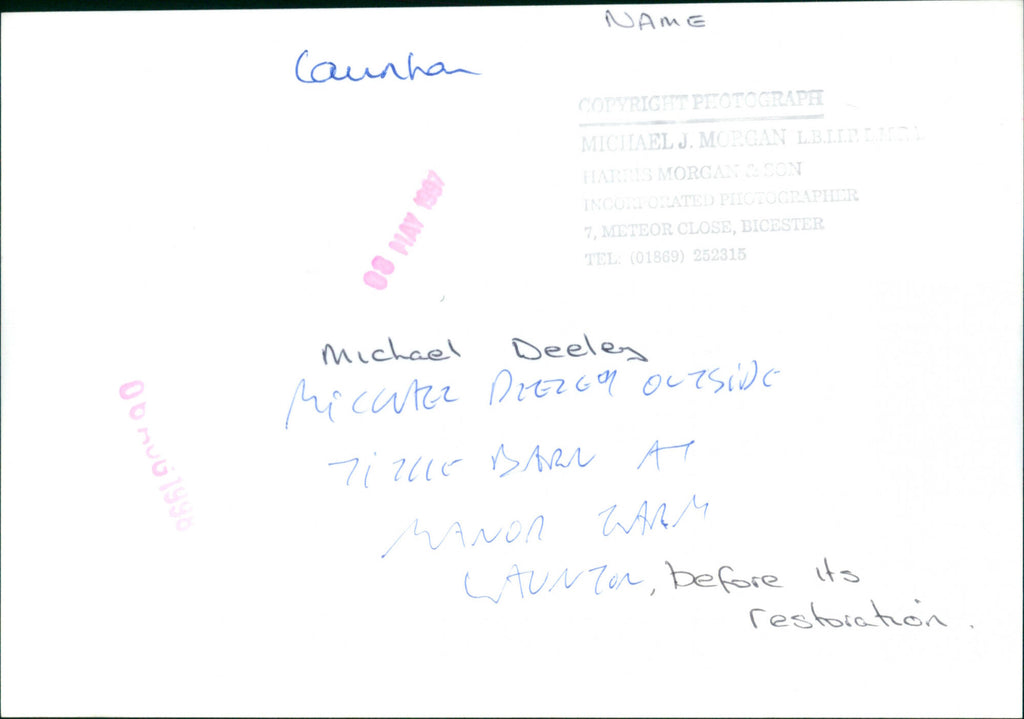 NAME
Launton
COPYRIGHT PHOTOGRAPH
MICHAEL J. MORGAN L.B.I.P.P.
HARRIS MORGAN & SON
INCORPORATED PHOTOGRAPHER
7, METEOR CLOSE, BICESTER
TEL: (01869) 252315
08 MAY 1997
Michael Deeley
MICHAEL DEELEY OUTSIDE
TITHE BARN AT
MANOR FARM
LAUNTON, before its
restoration.